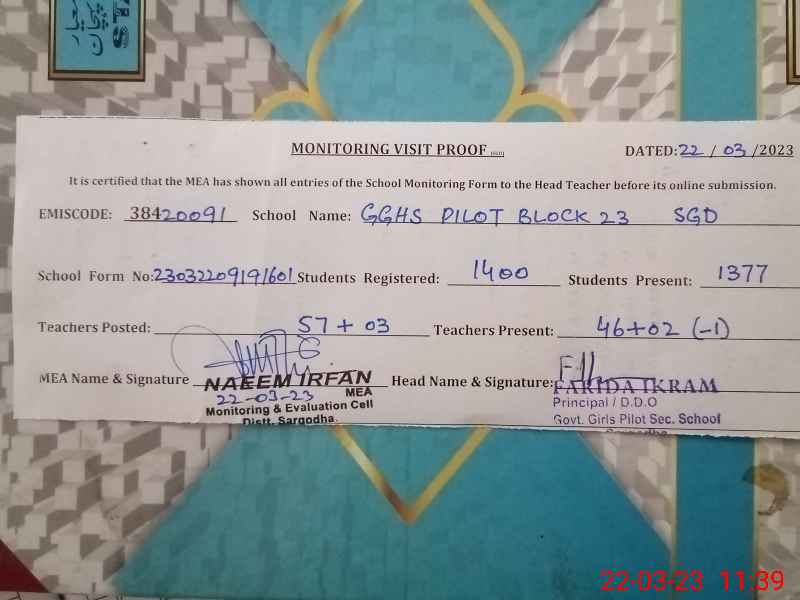 معیار
پہچان
STA
MONITORING VISIT PROOF
DATED: 22 / 03 /2023
It is certified that the MEA has shown all entries of the School Monitoring Form to the Head Teacher before its online submission.
EMISCODE: 38420091 School Name: GGHS PILOT BLOCK 23 SGD
School Form No: 23032209191601 Students Registered: 1400 Students Present: 1377
Teachers Posted: 57 + 03 Teachers Present: 46+02 (-1)
MEA Name & Signature NAEEM IRFAN Head Name & Signature: FARIDA IKRAM
22-03-23 MEA Principal / D.D.O
Monitoring & Evaluation Cell Govt. Girls Pilot Sec. School
Distt. Sargodha. Sargodha
22-03-23 11:39